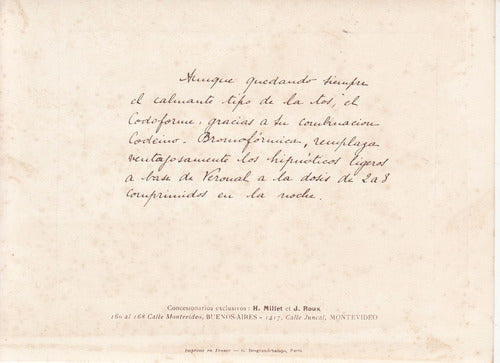 Aunque quedando siempre
el calmante tipo de la tos, el
Codoforme, gracias a su combinacion
Codeino-Bromofórmica, remplaza
ventajosamente los hipnóticos ligeros
a base de Veronal a la dosis de 2 a 3
comprimidos en la noche.
Concesionarios exclusivos: H. Millet et J. Roux
160 al 168 Calle Montevideo, BUENOS-AIRES - 1417, Calle Juncal, MONTEVIDEO
Imprimé en France — G. Desgrandchamps, Paris.